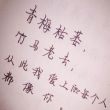 青梅枯萎，
竹马老去，
从此我爱上的每个人
都像你